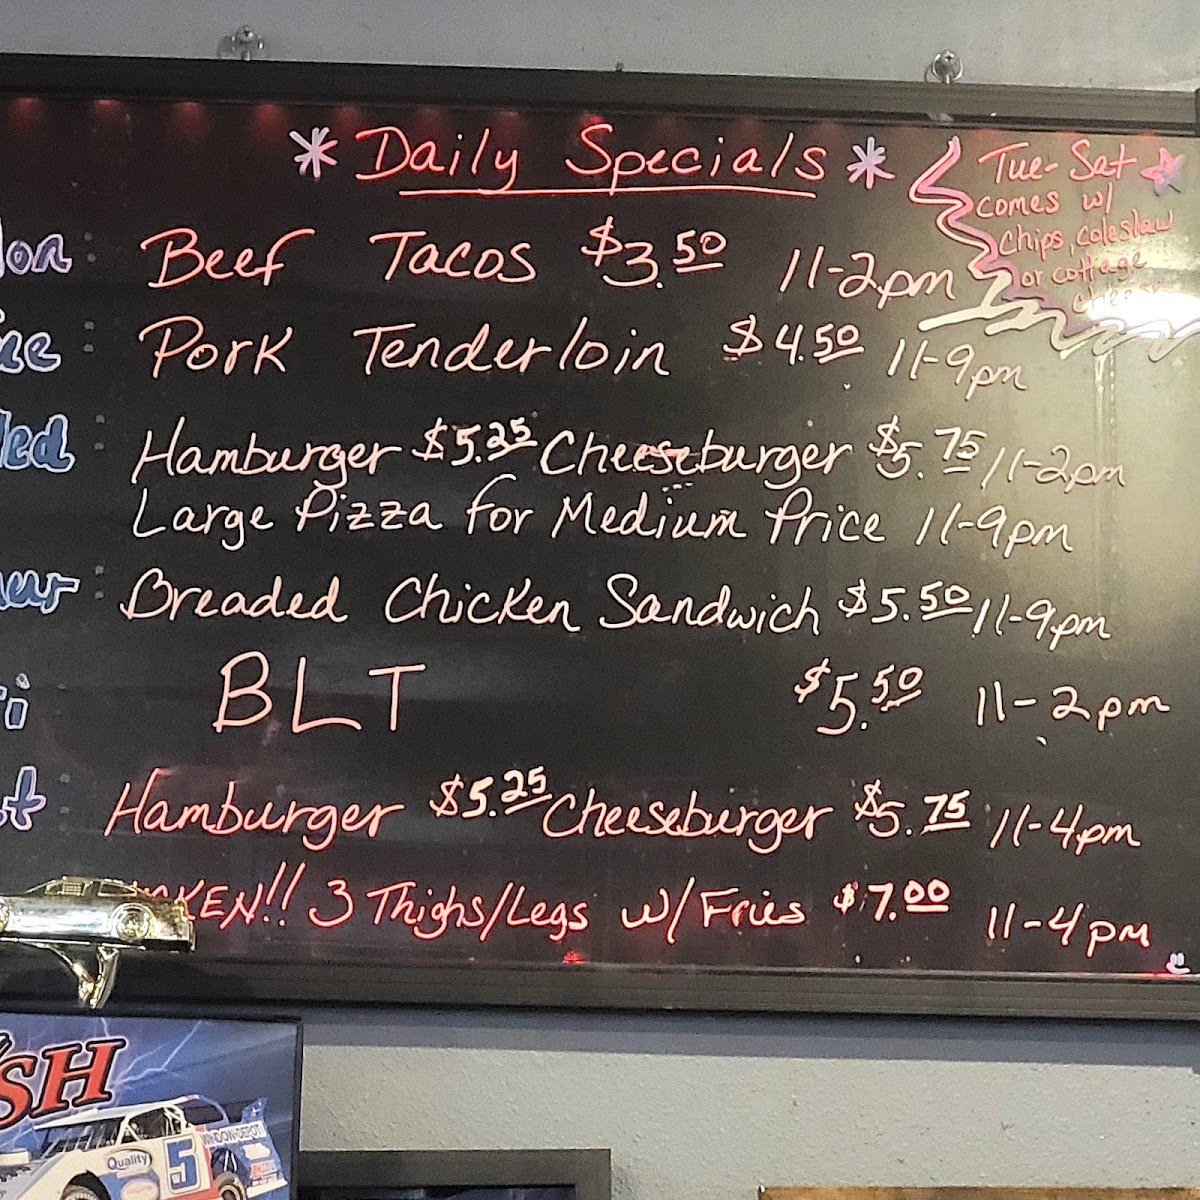 * Daily Specials *
Tue-Sat
comes w/
chips, coleslaw
or cottage
cheese
on: Beef Tacos $3.50 11-2pm
ue: Pork Tenderloin $4.50 11-9pm
ed: Hamburger $5.25 Cheeseburger $5.75 11-2pm
Large Pizza for Medium Price 11-9pm
hur: Breaded Chicken Sandwich $5.50 11-9pm
ri BLT $5.50 11-2pm
at: Hamburger $5.25 Cheeseburger $5.75 11-4pm
CKEN!! 3 Thighs/Legs w/Fries $7.00 11-4pm
SH
Quality
5
WINDOW DEPOT